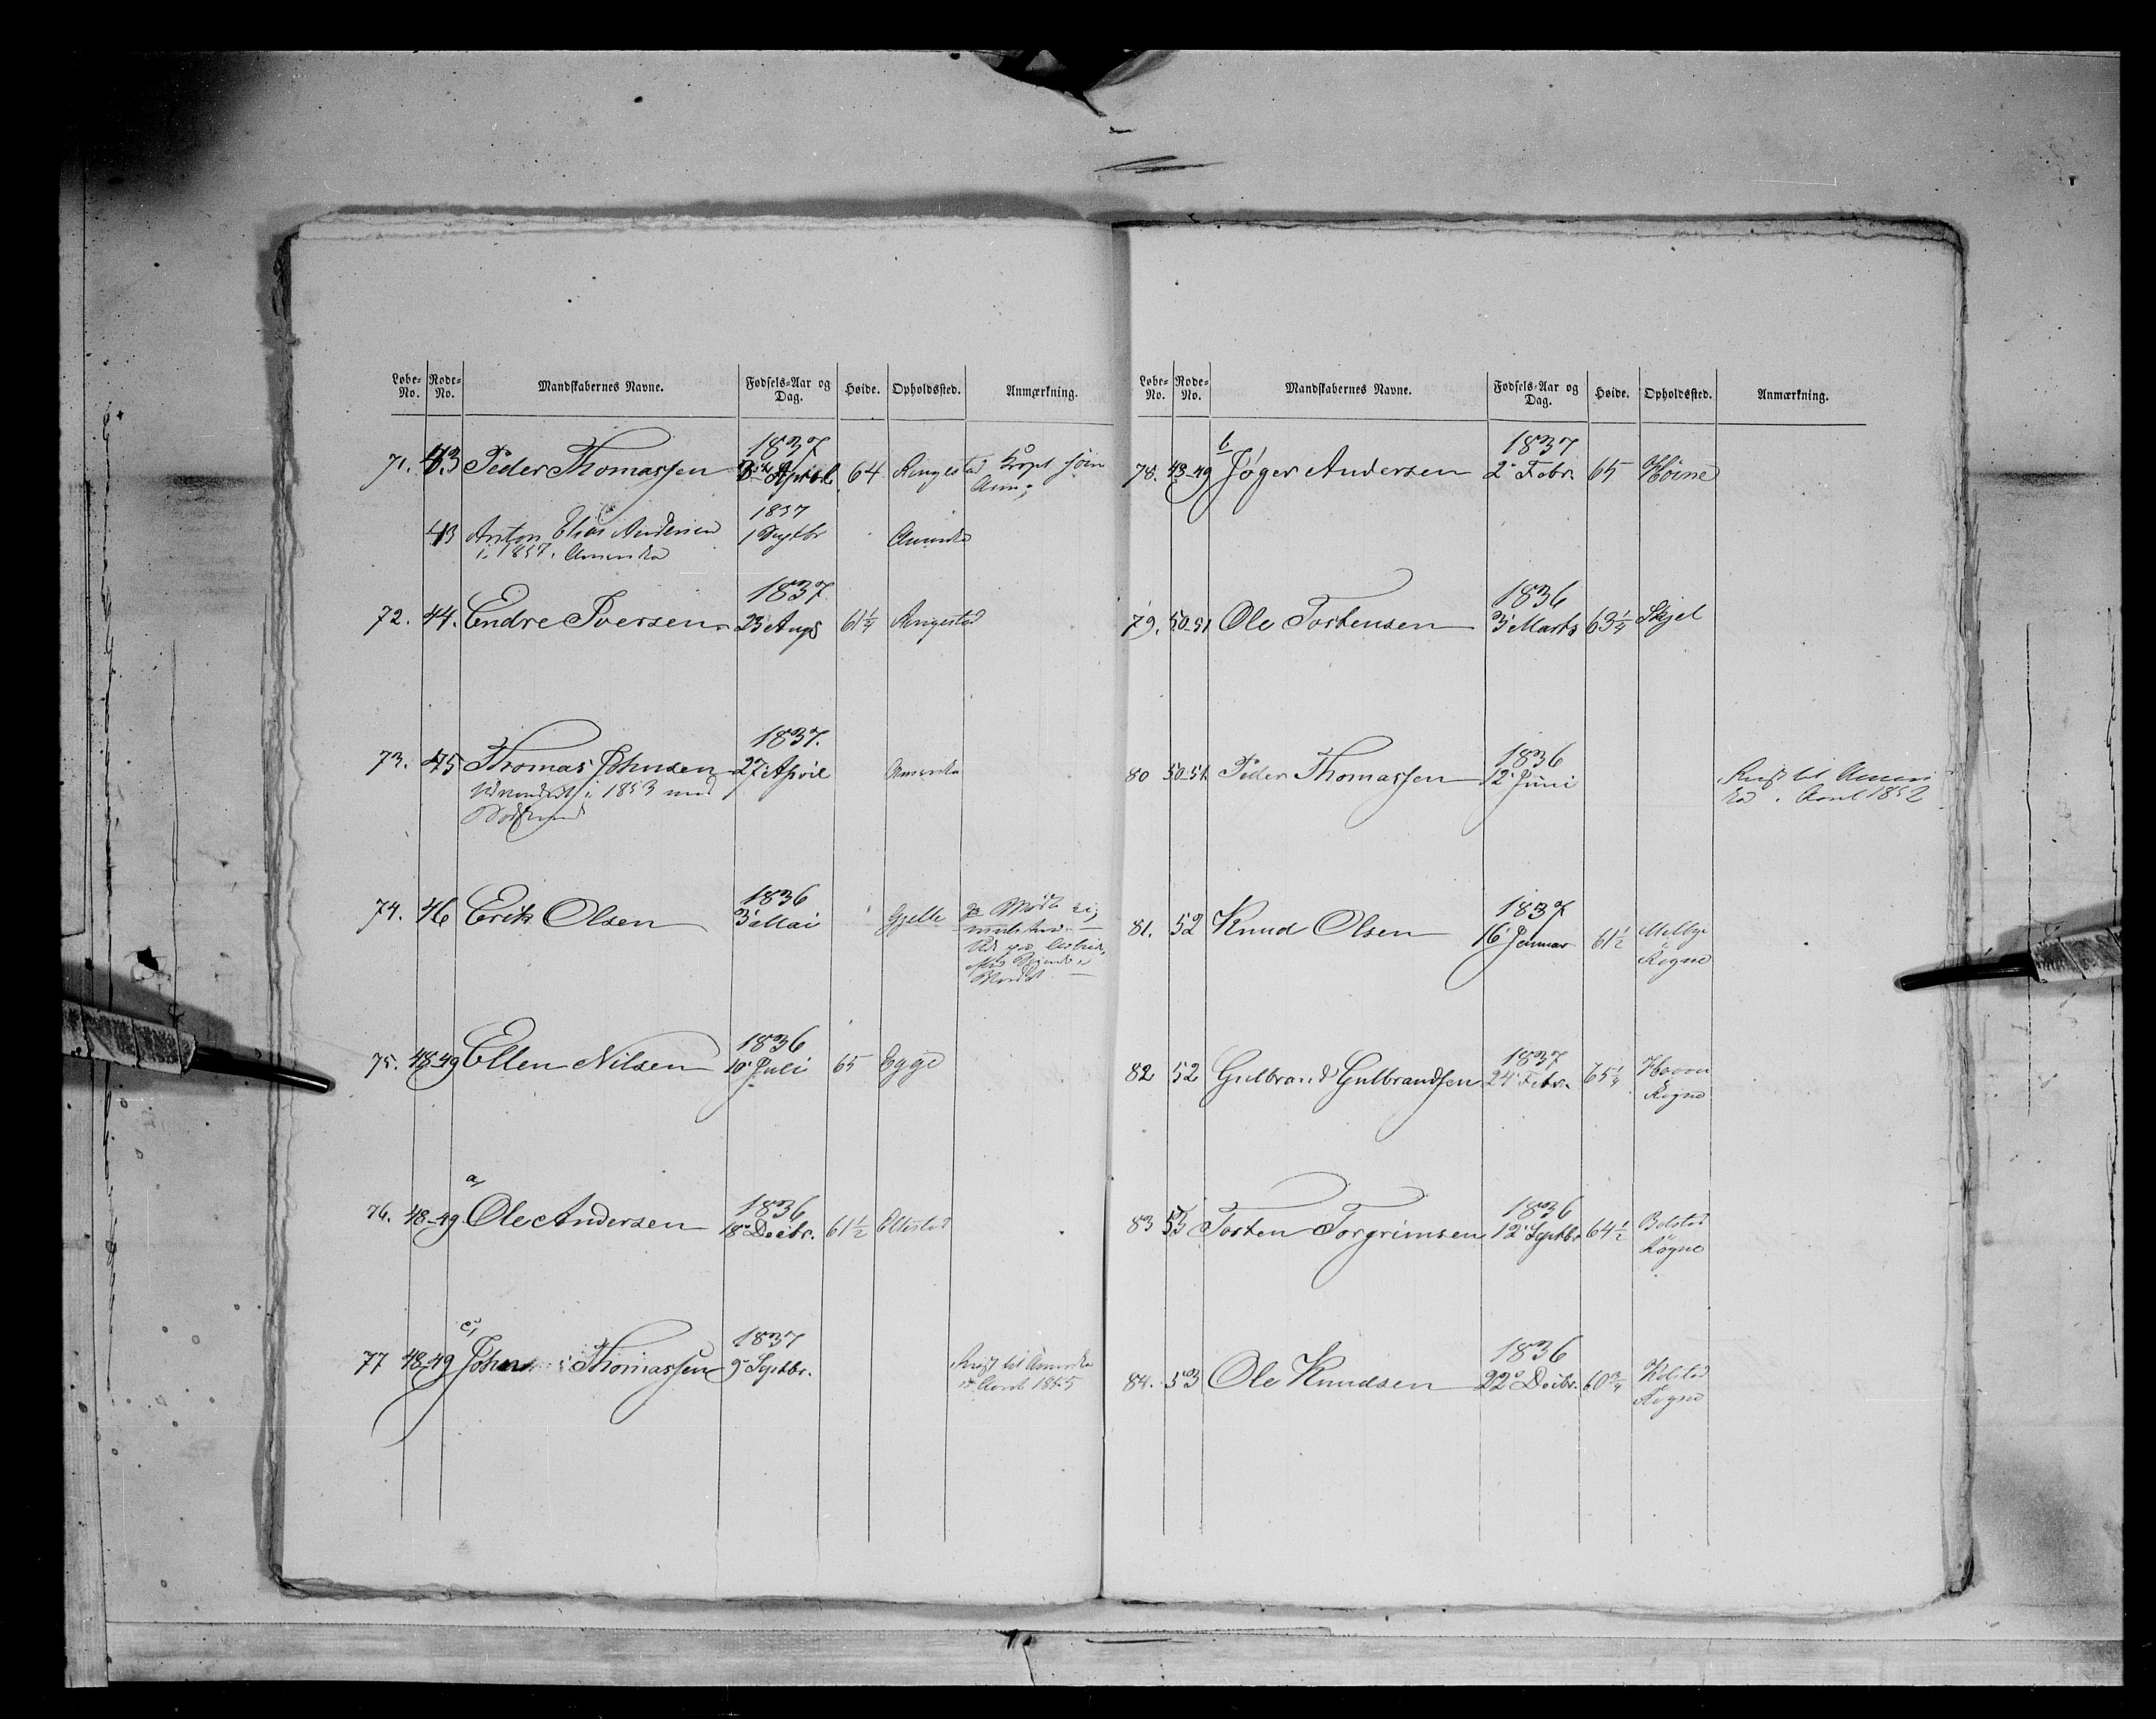 Løbe-No. Rode-No. Mandskabernes Navne. Fødsels-Aar og Dag. Høide. Opholdssted. Anmærkning.
1837
71. 43 Peder Thomassen April 64 Ringestad
1837
43 Anton Elias Andersen 1 Septbr Amerika
i 1857. Amerika
1837
72. 44. Endre Iversen 23 Aug 61 1/4 Ringestad
1837.
73. 45 Thomas Johnsen 27 April Amerika
Udvandret i 1853 med
1836
74. 46 Erik Olsen 3 Mai Gjelle
1836
75. 48-49 Ellen Nilsen 10 Juli 65 Egge
a, 1836
76. 48-49 Ole Andersen 18 Decbr. 61 1/2 Ellestad
c, 1837
77 48-49 John Thomassen 9 Septbr. Reist til Amerika
1855
Løbe-No. Rode-No. Mandskabernes Navne. Fødsels-Aar og Dag. Høide. Opholdssted. Anmærkning.
b 1837
78. 48-49 Jøger Andersen 2 Febr. 65 Høine
1836
79. 50-51 Ole Tostensen 3 Marts 63 1/4 Skjel
1836
80 50-51. Peder Thomassen 12 Juni Reist til Ameri
ka. 1852
1837
81. 52 Knud Olsen 16 Januar 61 1/2 Melbye
Røgne
1837
82 52 Gulbrand Gulbrandsen 24 Febr. 65 1/4
Røgne
1836
83 53 Tosten Torgrimsen 12 Septbr 64 1/2 Bolstad
Røgne
1836
84. 53 Ole Knudsen 22 Decbr. 60 3/4 Kolstad
Røgne